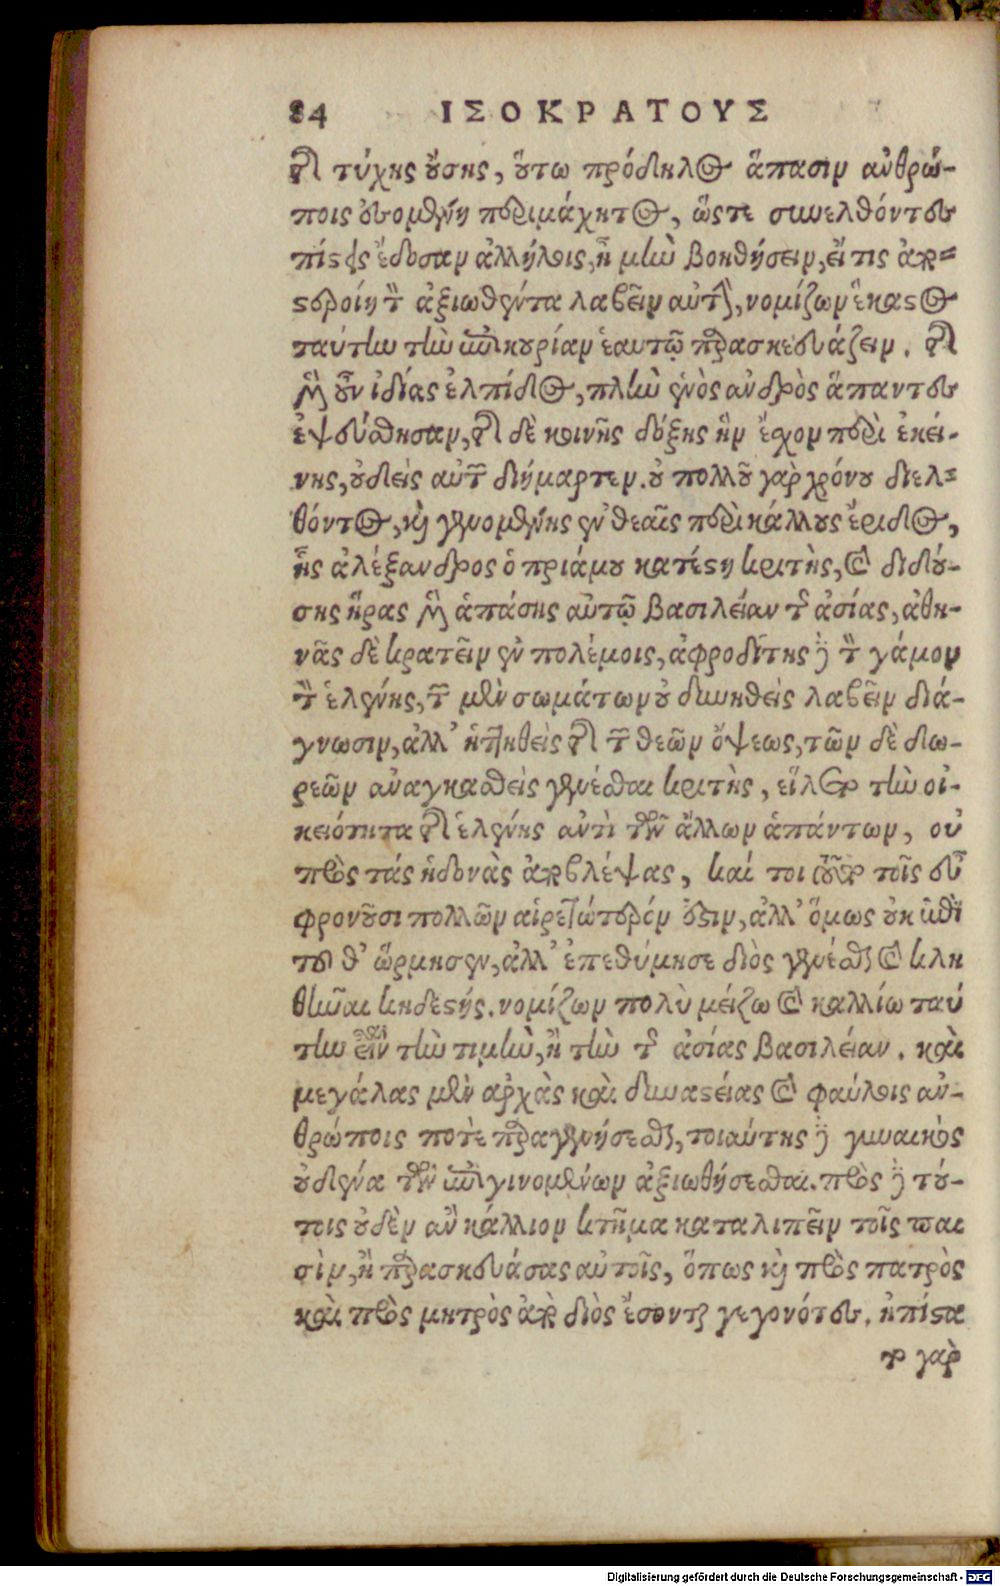 84 ΙΣΟΚΡΑΤΟΥΣ
διὰ τύχης ούσης, ούτω πρόδηλος άπασιν ανθρώ-
ποις ην γενομένη περιμάχητος, ώςτε συνελθόντες
πίστεις έδοσαν αλλήλοις, ή μην βοηθήσειν, εί τις απο-
στεροίη τον αξιωθέντα λαβείν αυτήν, νομίζων έκαστος
ταύτην την επικουρίαν εαυτώ παρασκευάζειν. της
μεν ούν ιδίας ελπίδος, πλην ενός ανδρός άπαντες
εψεύσθησαν, της δε κοινής δόξης ήν έχον περί εκεί-
νης, ουδείς αυτών διήμαρτεν. ου πολλού γαρ χρόνου διελ-
θόντος, και γενομένης εν θεαίς περί κάλλους έριδος,
ής αλέξανδρος ο πριάμου κατέστη κριτής, και διδού-
σης ήρας μεν απάσης αυτώ βασιλείαν της ασίας, αθη-
νάς δε κρατείν εν πολέμοις, αφροδίτης δε τον γάμον
τον ελένης, των μεν σωμάτων ου δυνηθείς λαβείν διά-
γνωσιν, αλλ' ηττηθείς της των θεών όψεως, των δε δω-
ρεών αναγκασθείς γενέσθαι κριτής, είλετο την οι-
κειότητα της ελένης αντί των άλλων απάντων, ου
προς τάς ηδονάς αποβλέψας, καί τοι και τούτο τοίς ευ
φρονούσι πολλών αιρετώτερόν εστιν, αλλ' όμως ουκ επί
τουθ' ώρμησεν, αλλ' επεθύμησε διός γενέσθαι και κλη
θήναι κηδεστής. νομίζων πολύ μείζω και καλλίω ταύ
την είναι την τιμήν, ή την της ασίας βασιλείαν. και
μεγάλας μεν αρχάς και δυναστείας και φαύλοις αν-
θρώποις ποτέ παραγενήσεσθαι, τοιαύτης δε γυναικός
ουδένα των επιγινομένων αξιωθήσεσθαι. προς δε τού-
τοις ουδέν αν κάλλιον κτήμα καταλιπείν τοίς παι
σίν, ή παρασκευάσας αυτοίς, όπως και προς πατρός
και προς μητρός από διός έσονται γεγονότες. ηπίστα
το γαρ
Digitalisierung gefördert durch die Deutsche Forschungsgemeinschaft - DFG